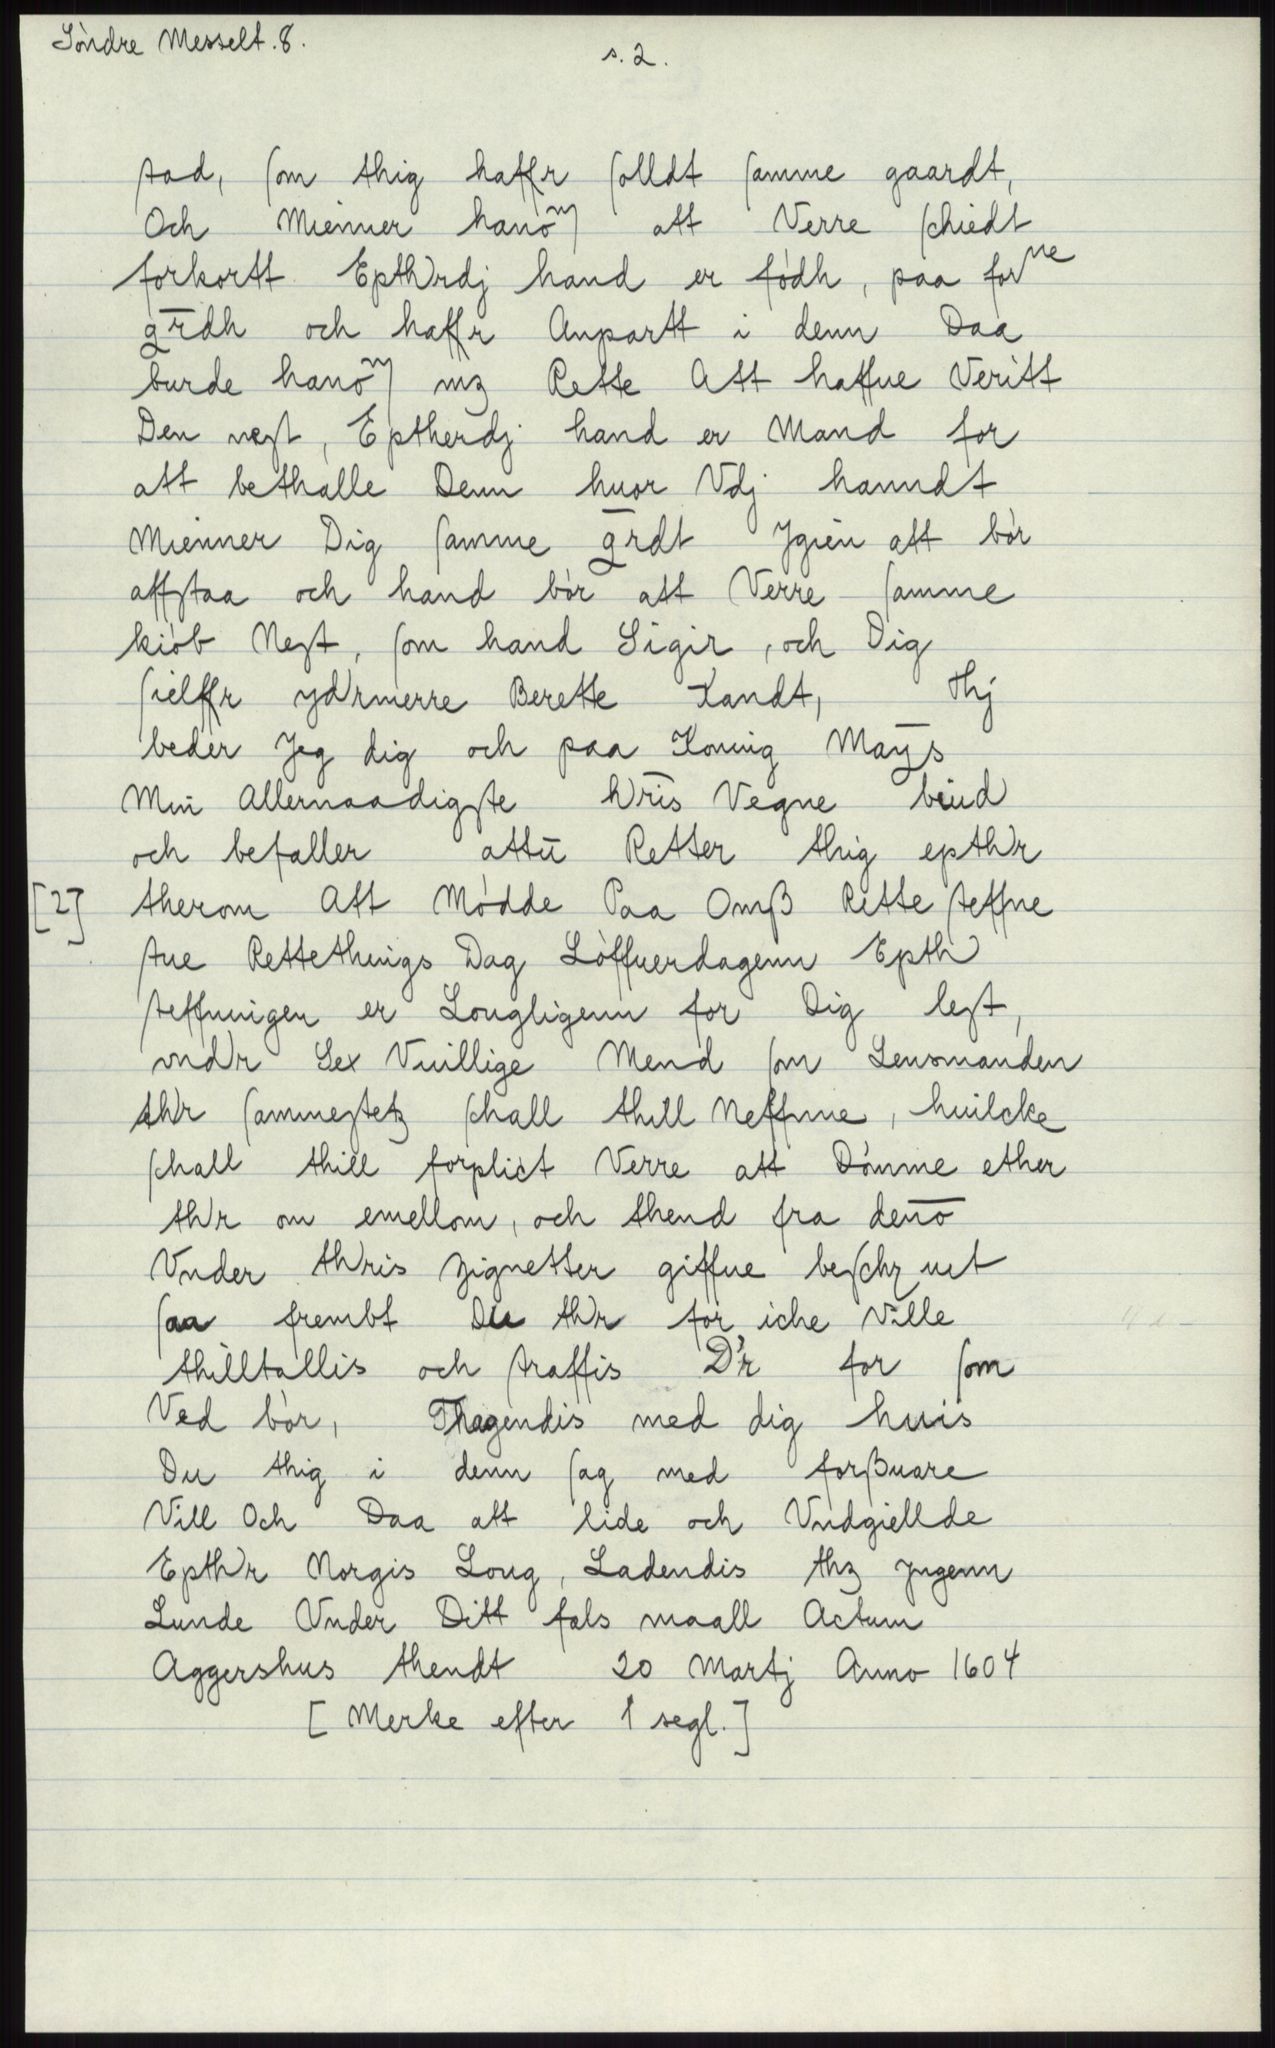 Söndre Messelt. 8.
s. 2.
stad, som thig haffr solldt samme gaardt,
Och Mienner hanom att Verre schiedt
forkortt Epthrdj hand er födh, paa forne
grdh och haffr Anpartt i denn Daa
burde hanom mz Rette Att haffue Veritt
Den nest, Eptherdj hand er Mand for
att bethalle Denn huor Vdj hanndt
Mienner Dig samme grdt Jgien att bör
affstaa och hand bör att Verre samme
kiöb Nest, som hand Sigir, och Dig
sielffr ydrmerre Berette Kandt, thj
beder Jeg dig och paa Koning Mays
Min Allernaadigste hris Vegne biud
och befaller attu Retter thig epthr
[2] therom Att Mödde Paa Omß Rette steffne
stue Rettethings Dag Löffuerdagenn Epth
steffningen er Lougligenn for Dig lest,
vndr Sex Vuillige Mend som Lensmanden
thr sammestetz schall thill Neffnne, huilcke
schall thill forplict Verre att Dömme ether
thr om emellom, och thend fra deno
Vnder thris zignetter giffue beschr uet
saa frembt Du thr for iche Ville
thilltallis och straffis D'r for som
Ved bör, Thagendis med dig huis
Du thig i denn sag med forßuare
Vill Och Daa att lide och Vndgiellde
Epthr Norgis Loug, Ladendis thz Jngenn
Lunde Vnder Ditt fals maall Actum
Aggershus thendt 20 Martj Anno 1604
[Merke efter 1 segl.]